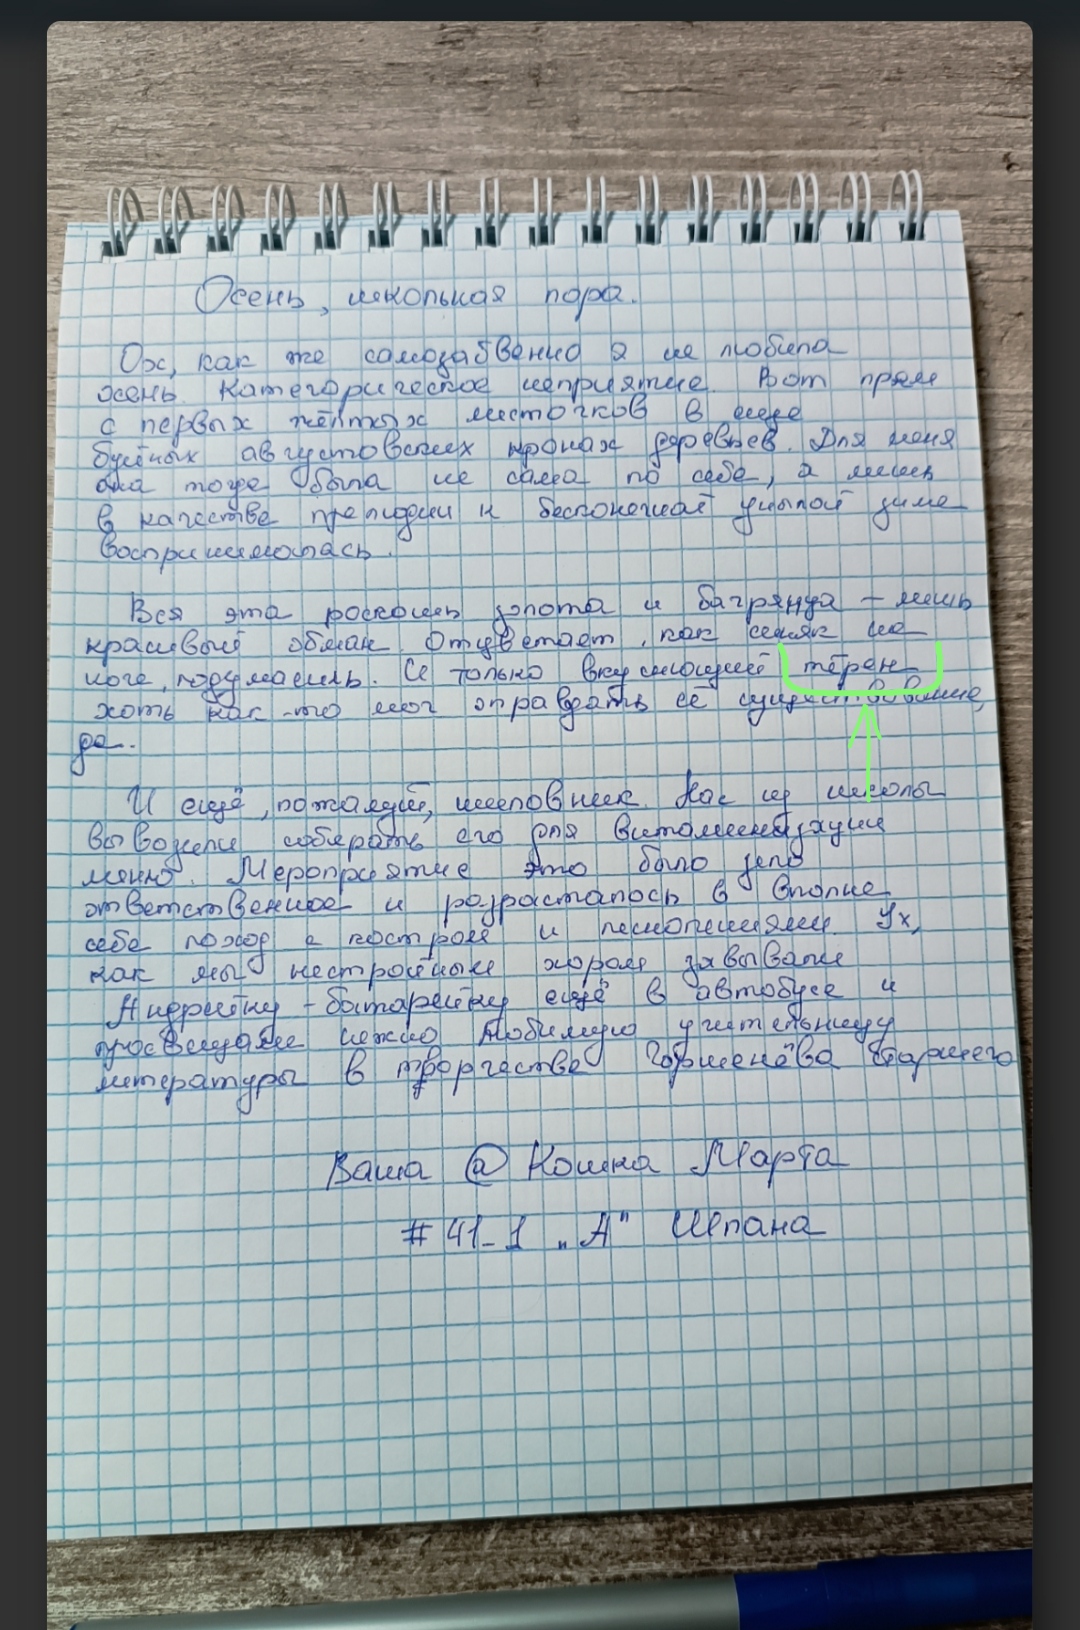 Осень, школьная пора.
Ох, как же самозабвенно я не любила
осень. Категорическое неприятие. Вот прям
с первых жёлтых листочков в еще
буйных августовских кронах деревьев. Для меня
она тоже была не сама по себе, а лишь
в качестве прелюдии к бесконечной унылой зиме
воспринималась.
Вся эта роскошь золота и багрянца – лишь
красивый обман. Отцветает, как синяк на
ноге, подумаешь. И только вкуснющий тёрен
хоть как-то мог оправдать её существование,
да.
И ещё, пожалуй, шиповник. Нас из школы
вывозили собирать его для витаминизации
меню. Мероприятие это было зело
ответственное и разрасталось в вполне
себе поход с костром и песнопениями. Ух,
как мы нестройным хором завывали
Андрейку-батарейку ещё в автобусе и
просвещали нежно любимую учительницу
литературы в творчестве Горшенёва старшего
Ваша @ Кошка Марта
# 41-1 „А" Шпана